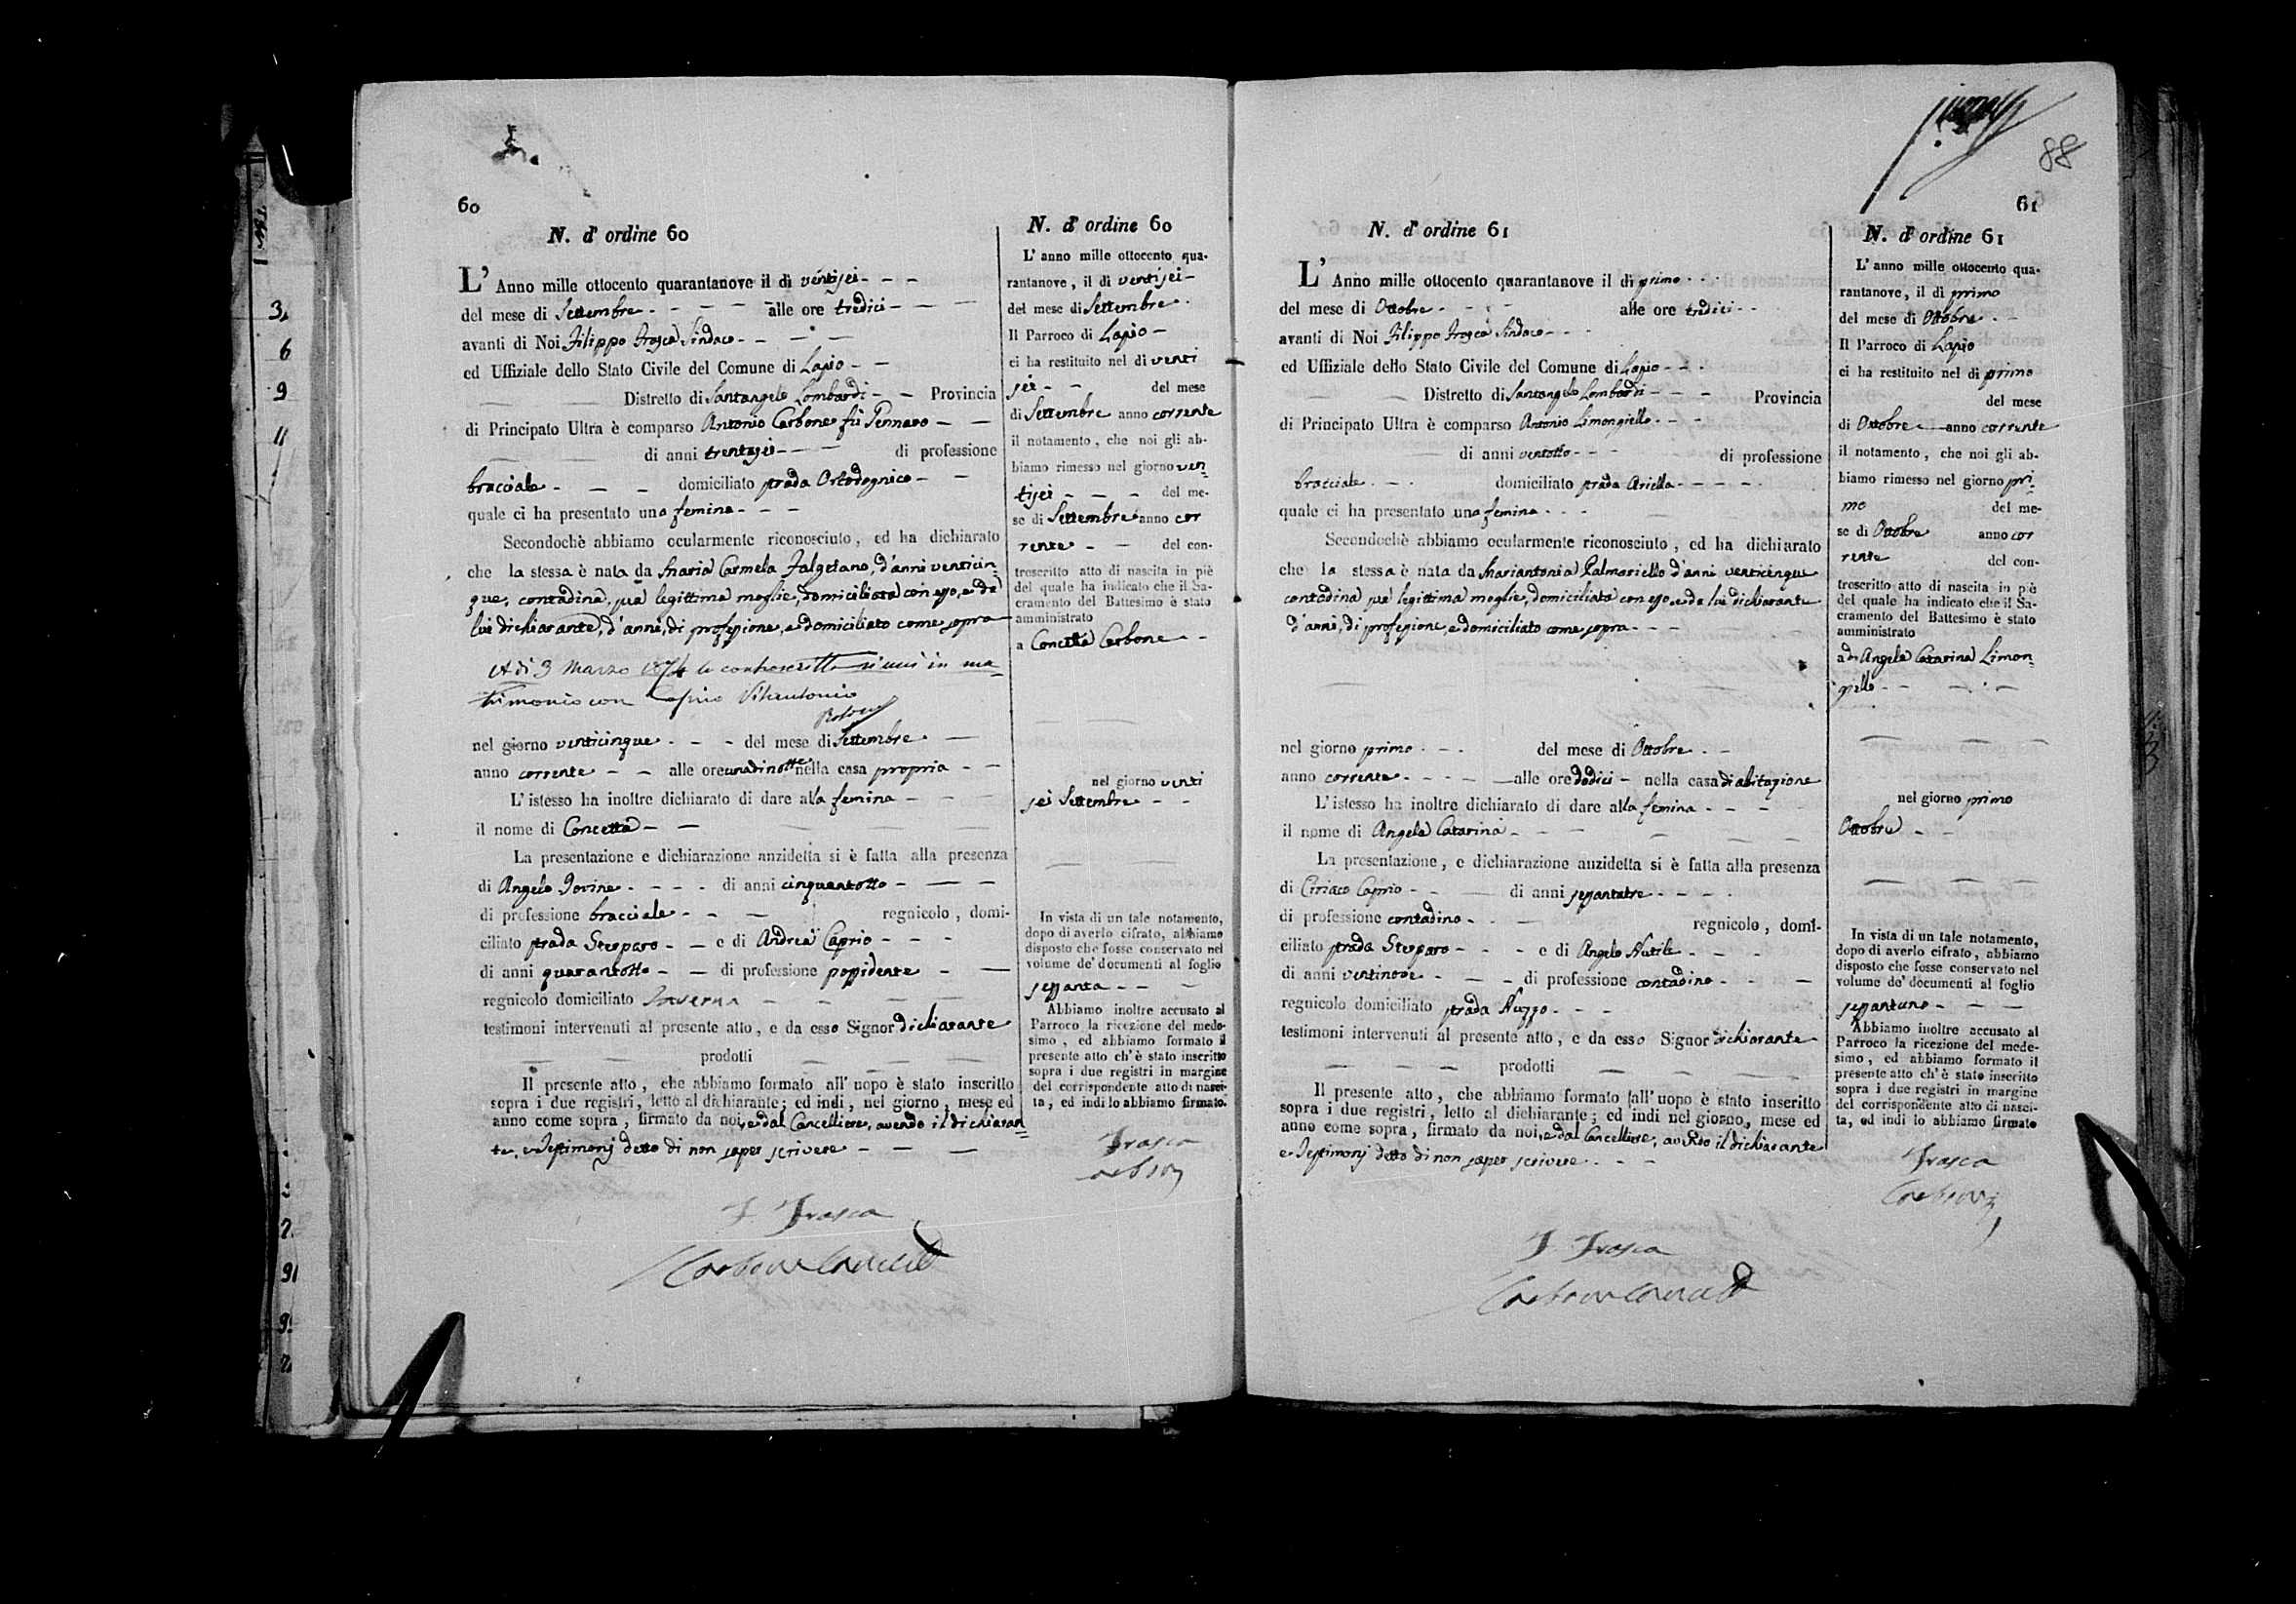 60
N. d' ordine 60
L' Anno mille ottocento quarantanove il dì ventisei
del mese di Settembre alle ore tredici
avanti di Noi Filippo Frasca Sindaco
ed Uffiziale dello Stato Civile del Comune di Lapio
Distretto di Santangelo Lombardi Provincia
di Principato Ultra è comparso Antonio Carbone fù Gennaro
di anni trentasei di professione
bracciale domiciliato strada
quale ci ha presentato una femina
Secondochè abbiamo ocularmente riconosciuto, ed ha dichiarato
che la stessa è nata da Maria Carmela Falgetano, d'anni venticin=
que, contadina, sua legittima moglie, domiciliata con esso, e da
lui dichiarante, d'anni, di professione, e domiciliato come sopra
A dì 3 Marzo 1874 la controscritta si unì in ma=
trimonio con Caprio Vitantonio
nel giorno venticinque del mese di Settembre
anno corrente alle ore undinotte nella casa propria
L'istesso ha inoltre dichiarato di dare alla femina
il nome di Concetta
La presentazione e dichiarazione anzidetta si è fatta alla presenza
di Angelo Iorine di anni cinquantotto
di professione bracciale regnicolo, domi-
ciliato strada Stesparo e di Andrea Caprio
di anni quarantotto di professione possidente
regnicolo domiciliato
testimoni intervenuti al presente atto, e da esso Signor dichiarante
prodotti
Il presente atto, che abbiamo formato all' uopo è stato inscritto
sopra i due registri, letto al dichiarante; ed indi, nel giorno, mese ed
anno come sopra, firmato da noi, e dal Cancelliere, avendo il dichiaran=
te, e Testimonj detto di non saper scrivere
F. Frasca
Carbone Cancell
N. d' ordine 60
L' anno mille ottocento qua-
rantanove, il dì ventisei
del mese di Settembre
Il Parroco di Lapio
ci ha restituito nel dì venti
sei del mese
di Settembre anno corrente
il notamento, che noi gli ab-
biamo rimesso nel giorno ven=
tisei del me-
se di Settembre anno cor
rente del con-
troscritto atto di nascita in piè
del quale ha indicato che il Sa-
cramento del Battesimo è stato
amministrato
a Concetta Carbone
nel giorno venti
sei Settembre
In vista di un tale notamento,
dopo di averlo cifrato, abbiamo
disposto che fosse conservato nel
volume de' documenti al foglio
sessanta
Abbiamo inoltre accusato al
Parroco la ricezione del mede-
simo, ed abbiamo formato il
presente atto ch' è stato inscritto
sopra i due registri in margine
del corrispondente atto di nasci-
ta, ed indi lo abbiamo firmato.
Frasca
Carbone
88
61
N. d' ordine 61
L' Anno mille ottocento quarantanove il dì primo
del mese di Ottobre alle ore tredici
avanti di Noi Filippo Frasca Sindaco
ed Uffiziale dello Stato Civile del Comune di Lapio
Distretto di Santangelo Lombardi Provincia
di Principato Ultra è comparso Antonio Limongiello
di anni ventotto di professione
bracciale domiciliato strada Ariella
quale ci ha presentato una femina
Secondochè abbiamo ocularmente riconosciuto, ed ha dichiarato
che la stessa è nata da Mariantonia Palmariello d'anni venticinque
contadina sua legittima moglie, domiciliata con esso, e da lui dichiarante
d'anni, di professione, e domiciliato come sopra
nel giorno primo del mese di Ottobre
anno corrente alle ore dodici nella casa di abitazione
L'istesso ha inoltre dichiarato di dare alla femina
il nome di Angela Catarina
La presentazione, e dichiarazione anzidetta si è fatta alla presenza
di Ciriaco Caprio di anni sessantatre
di professione contadino regnicolo, domi-
ciliato strada Stesparo e di Angelo Nutile
di anni ventinove di professione contadino
regnicolo domiciliato strada Nuzzo
testimoni intervenuti al presente atto, e da esso Signor dichiarante
prodotti
Il presente atto, che abbiamo formato all' uopo è stato inscritto
sopra i due registri, letto al dichiarante; ed indi nel giorno, mese ed
anno come sopra, firmato da noi, e dal Cancelliere, avendo il dichiarante
e Testimonj detto di non saper scrivere
F. Frasca
Carbone Cancell
N. d' ordine 61
L' anno mille ottocento qua-
rantanove, il dì primo
del mese di Ottobre
Il Parroco di Lapio
ci ha restituito nel dì primo
del mese
di Ottobre anno corrente
il notamento, che noi gli ab-
biamo rimesso nel giorno pri=
mo del me-
se di Ottobre anno cor
rente del con-
troscritto atto di nascita in piè
del quale ha indicato che il Sa-
cramento del Battesimo è stato
amministrato
ad Angela Catarina Limon=
giello
nel giorno primo
Ottobre
In vista di un tale notamento,
dopo di averlo cifrato, abbiamo
disposto che fosse conservato nel
volume de' documenti al foglio
sessantuno
Abbiamo inoltre accusato al
Parroco la ricezione del mede-
simo, ed abbiamo formato il
presente atto ch' è stato inscritto
sopra i due registri in margine
del corrispondente atto di nasci-
ta, ed indi lo abbiamo firmato
Frasca
Carbone